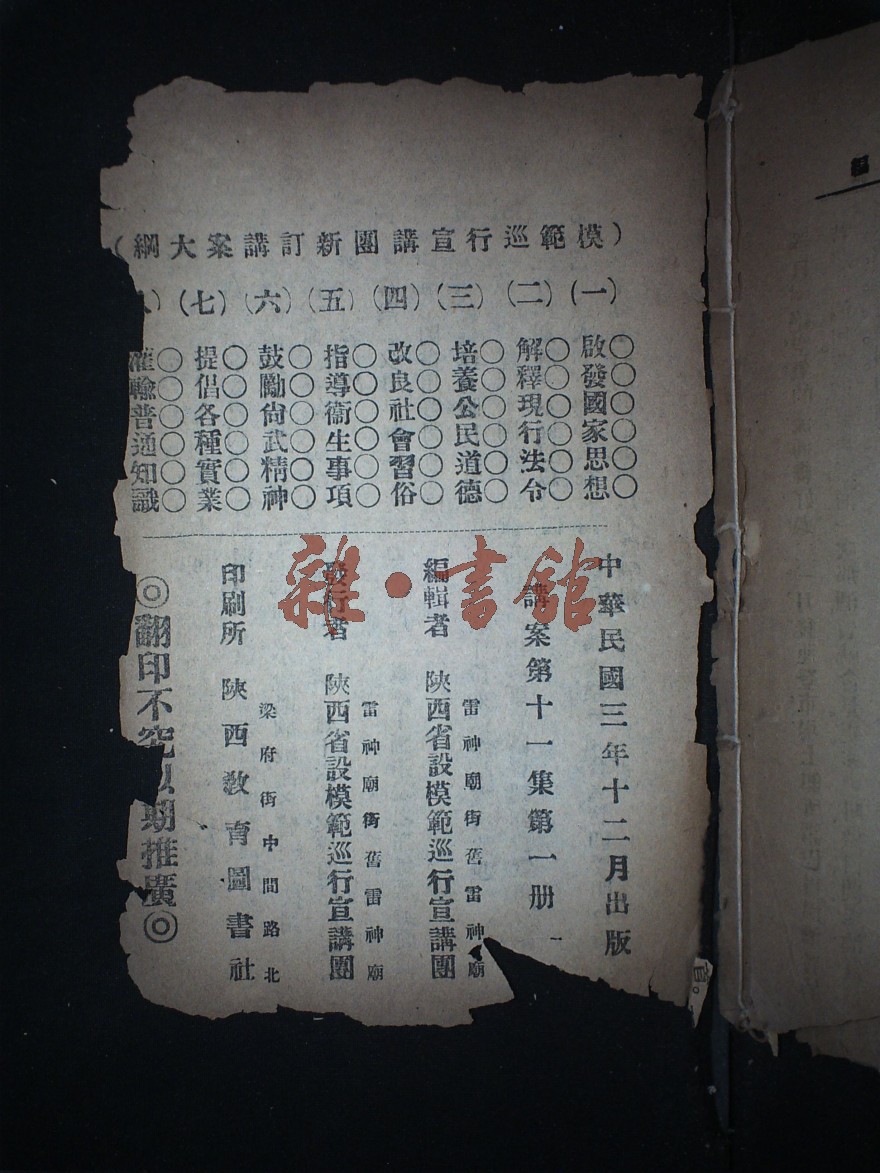 （模範巡行宣講團新訂講案大綱
（一）啟發國家思想
（二）解釋現行法令
（三）培養公民道德
（四）改良社會習俗
（五）指導衞生事項
（六）鼓勵尙武精神
（七）提倡各種實業
灌輸普通知識
中華民國三年十二月出版
講案第十一集第一册
編輯者 陝西省設模範巡行宣講團
雷神廟街舊雷神廟
發行者 陝西省設模範巡行宣講團
雷神廟街舊雷神廟
印刷所 陝西教育圖書社
梁府街中間路北
◎翻印不究以期推廣◎
雜·書館
編